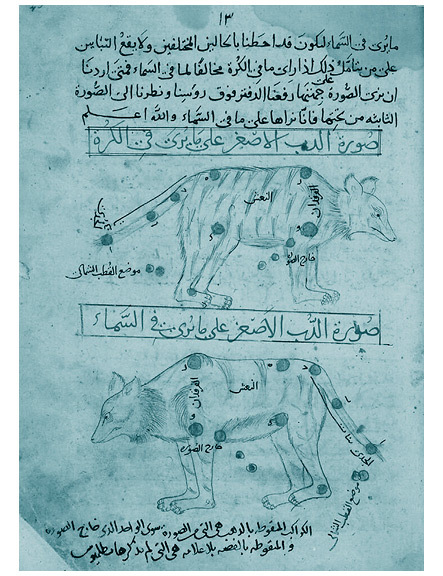 ١٣
ما يرى في السماء لكون قد احطنا با كالتين المختلفين ولا يقع التباين
على من يتأمل ذلك اذا راى ما في الكرة مخالفا لما في السماء فمتى اردنا
ان نرى الصورة على جهتها رفعنا الدفتر فوق رؤسنا ونظرنا الى الصورة
الثانية من تحتها فانا نراها على ما في السماء والله اعلم
صورة الدب الاصغر على ما يرى في الكرة
النعش
الفرقدان
خارج الصورة
موضع القطب الشمالي
صورة الدب الاصغر على ما يرى في السماء
الفرقدان
النعش
خارج الصورة
الجدي
موضع القطب الشمالي
الكواكب المنقوطه بالذهب هي التي من الصورة سوى الواحد الذي خارج الصورة
و المنقوطه بالفضه بلا علامه هي التي لم يذكرها بطلميوس